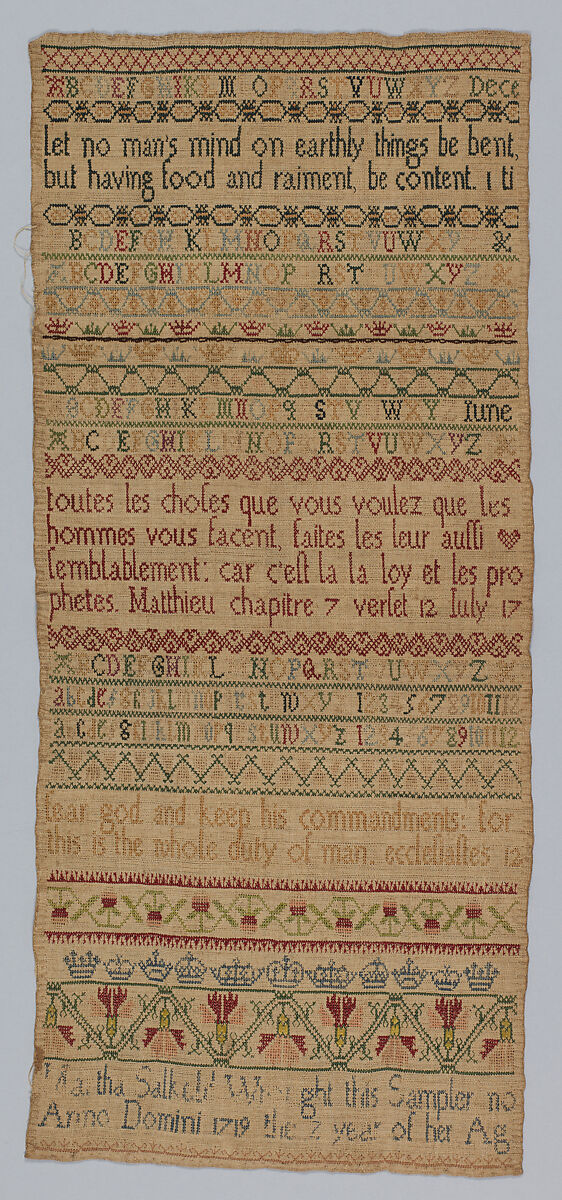 ABCDEFGHIKLM OP RSTVUWXYZ Dece
let no man's mind on earthly things be bent,
but having food and raiment, be content. 1 ti
BCDEFGH KLMNOPQRSTVUWXY &
ABCDEFGHIKLMNOP RST UWXYZ &
BCDEFGHIKLMNOP q S T V W X Y Iune
ABC EFGHI L NOP RSTVUWXYZ
toutes les choses que vous voulez que les
hommes vous facent, faites les leur aussi
semblablement: car c'est la la loy et les pro
phetes. Matthieu chapitre 7 verset 12 Iuly 17
A CDEFGHI L NOPQRST UWXYZ
abcdefghiklmnoprstwxy 123 5 7 8 9 10 11
a c e g i k l m opq stuwxyz 12 4 6 7 8 9 10 11 12
fear god and keep his commandments: for
this is the whole duty of man. ecclesiastes 12
Martha Salkeld Wrought this Sampler no
Anno Domini 1719 the 2 year of her Ag